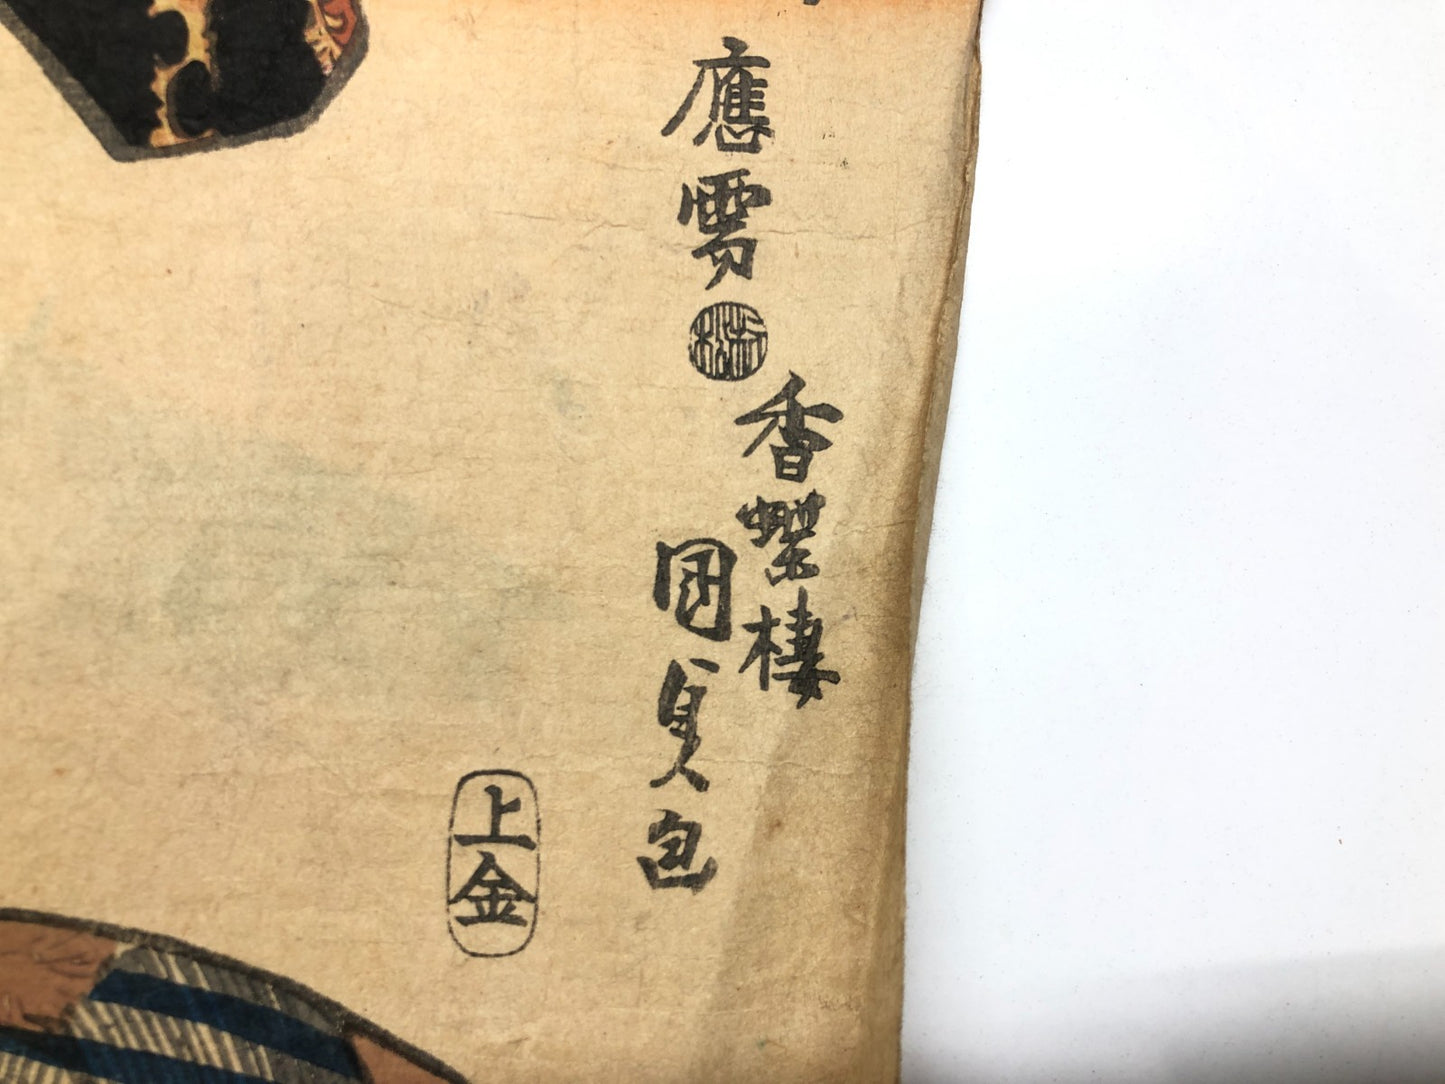 應需
香蝶樓
國貞画
上金